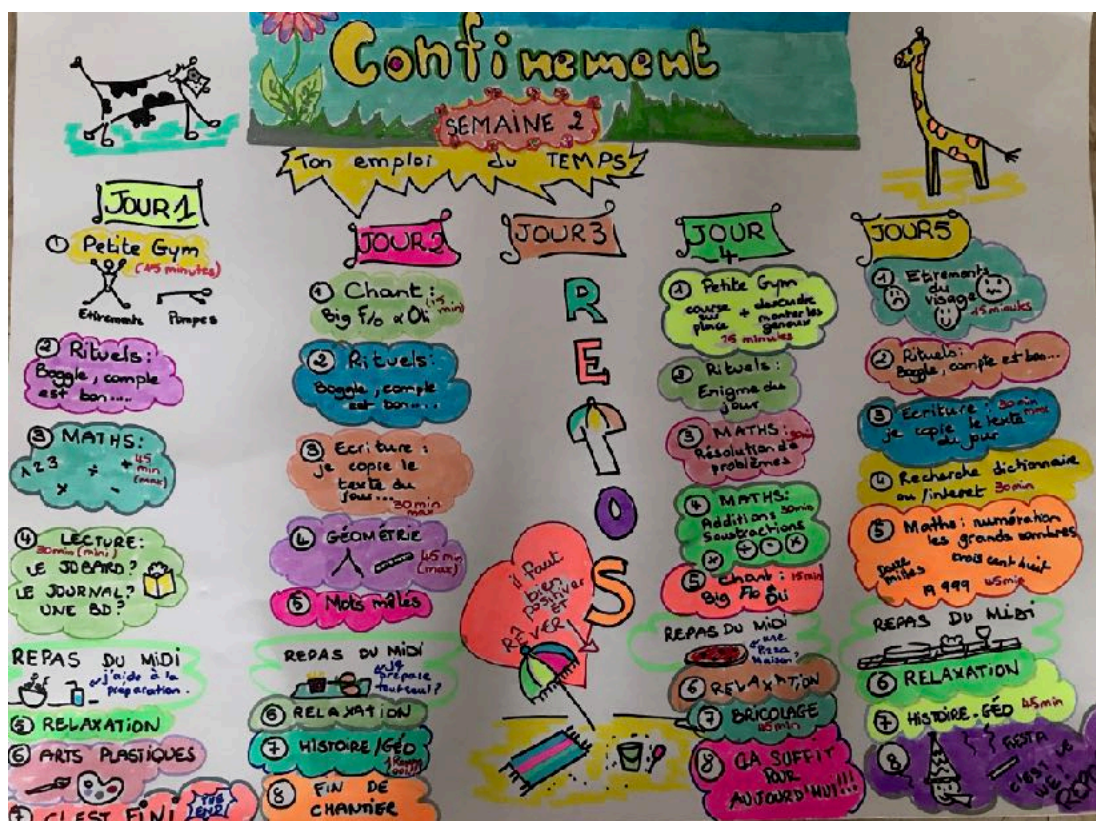 Confinement
SEMAINE 2
Ton emploi du TEMPS
JOUR 1
① Petite Gym
(15 minutes)
Etirements Pompes
② Rituels:
Boggle, compte
est bon....
③ MATHS:
1 2 3 ÷ + 45
min
(max)
× -
④ LECTURE:
30min (mini)
LE JOBARD?
LE JOURNAL?
UNE BD?
REPAS DU MIDI
j'aide à la
préparation.
⑤ RELAXATION
⑥ ARTS PLASTIQUES
⑦ C'EST FINI THE END
JOUR 2
① Chant: (15 min)
Big Flo & Oli
② Rituels:
Boggle, compte
est bon....
③ Ecriture:
je copie le
texte du
jour...
30min
max
④ GÉOMÉTRIE
45 min
(max)
⑤ Mots mêlés
REPAS DU MIDI
je
prépare
tout seul?
⑥ RELAXATION
⑦ HISTOIRE/GÉO
⑧ FIN DE
CHANTIER
JOUR 3
REPOS
il faut
bien
positiver
ET
RÊVER
JOUR
4
① Petite Gym
course
sur
place + descendre
monter les
genoux
15 minutes
② Rituels:
Enigme du
jour
③ MATHS:
Résolution de
problèmes
④ MATHS:
Additions 30min
Soustractions
⑤ Chant: 15min
Big Flo & Oli
REPAS DU MIDI
une
Pizza
Maison?
⑥ RELAXATION
⑦ BRICOLAGE
45min
⑧ ÇA SUFFIT
POUR
AUJOURD'HUI!!!
JOUR 5
① Etirements
du
visage
15 minutes
② Rituels:
Boggle, compte est bon...
③ Ecriture: 30min
max
je copie le texte
du jour
④ Recherche dictionnaire
ou /internet 30min
⑤ Maths: numération
les grands nombres
Douze
milles
trois cent huit
A 999 45min
REPAS DU MIDI
⑥ RELAXATION
⑦ HISTOIRE-GÉO 45min
⑧ FIESTA
C'EST LE